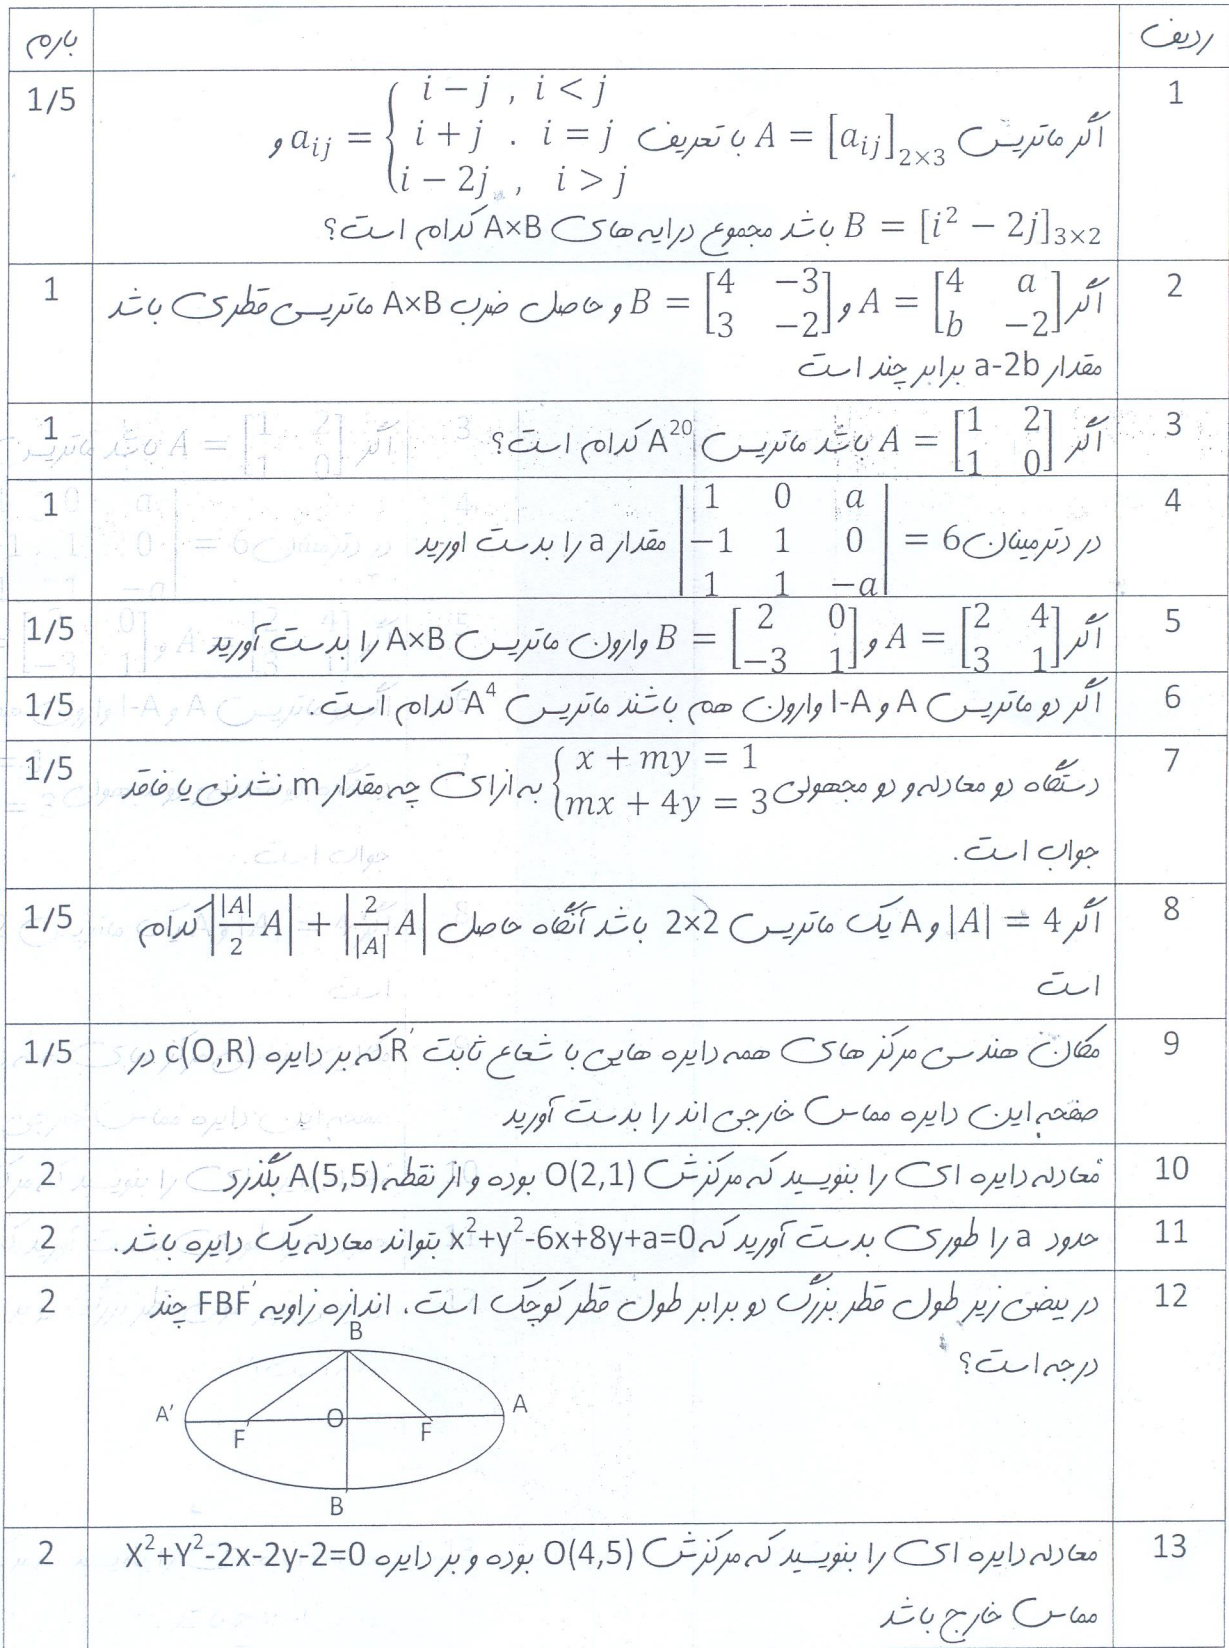 ردیف بارم
1 اگر ماتریس A = [a_{ij}]_{2×3} با تعریف a_{ij} = { i − j , i < j ; i + j . i = j ; i − 2j , i > j و 1/5
B = [i² − 2j]_{3×2} باشد مجموع درایه های A×B کدام است؟
2 اگر A = [4 a ; b −2] و B = [4 −3 ; 3 −2] و حاصل ضرب A×B ماتریس قطری باشد 1
مقدار a-2b برابر چند است
3 اگر A = [1 2 ; 1 0] باشد ماتریس A²⁰ کدام است؟ 1
4 در دترمینان |1 0 a ; −1 1 0 ; 1 1 −a| = 6 مقدار a را بدست اورید 1
5 اگر A = [2 4 ; 3 1] و B = [2 0 ; −3 1] وارون ماتریس A×B را بدست آورید 1/5
6 اگر دو ماتریس A و I-A وارون هم باشند ماتریس A⁴ کدام است. 1/5
7 دستگاه دو معادله و دو مجهولی { x + my = 1 ; mx + 4y = 3 به ازای چه مقدار m نشدنی یا فاقد 1/5
جواب است.
8 اگر |A| = 4 و A یک ماتریس 2×2 باشد آنگاه حاصل | |A|/2 A | + | 2/|A| A | کدام 1/5
است
9 مکان هندسی مرکز های همه دایره هایی با شعاع ثابت R' که بر دایره c(O,R) در 1/5
صفحه این دایره مماس خارجی اند را بدست آورید
10 معادله دایره ای را بنویسید که مرکزش O(2,1) بوده و از نقطه A(5,5) بگذرد 2
11 حدود a را طوری بدست آورید که x²+y²-6x+8y+a=0 بتواند معادله یک دایره باشد. 2
12 در بیضی زیر طول قطر بزرگ دو برابر طول قطر کوچک است. اندازه زاویه FBF' چند 2
درجه است؟
B
A' F O F A
B
13 معادله دایره ای را بنویسید که مرکزش O(4,5) بوده و بر دایره X²+Y²-2x-2y-2=0 2
مماس خارج باشد